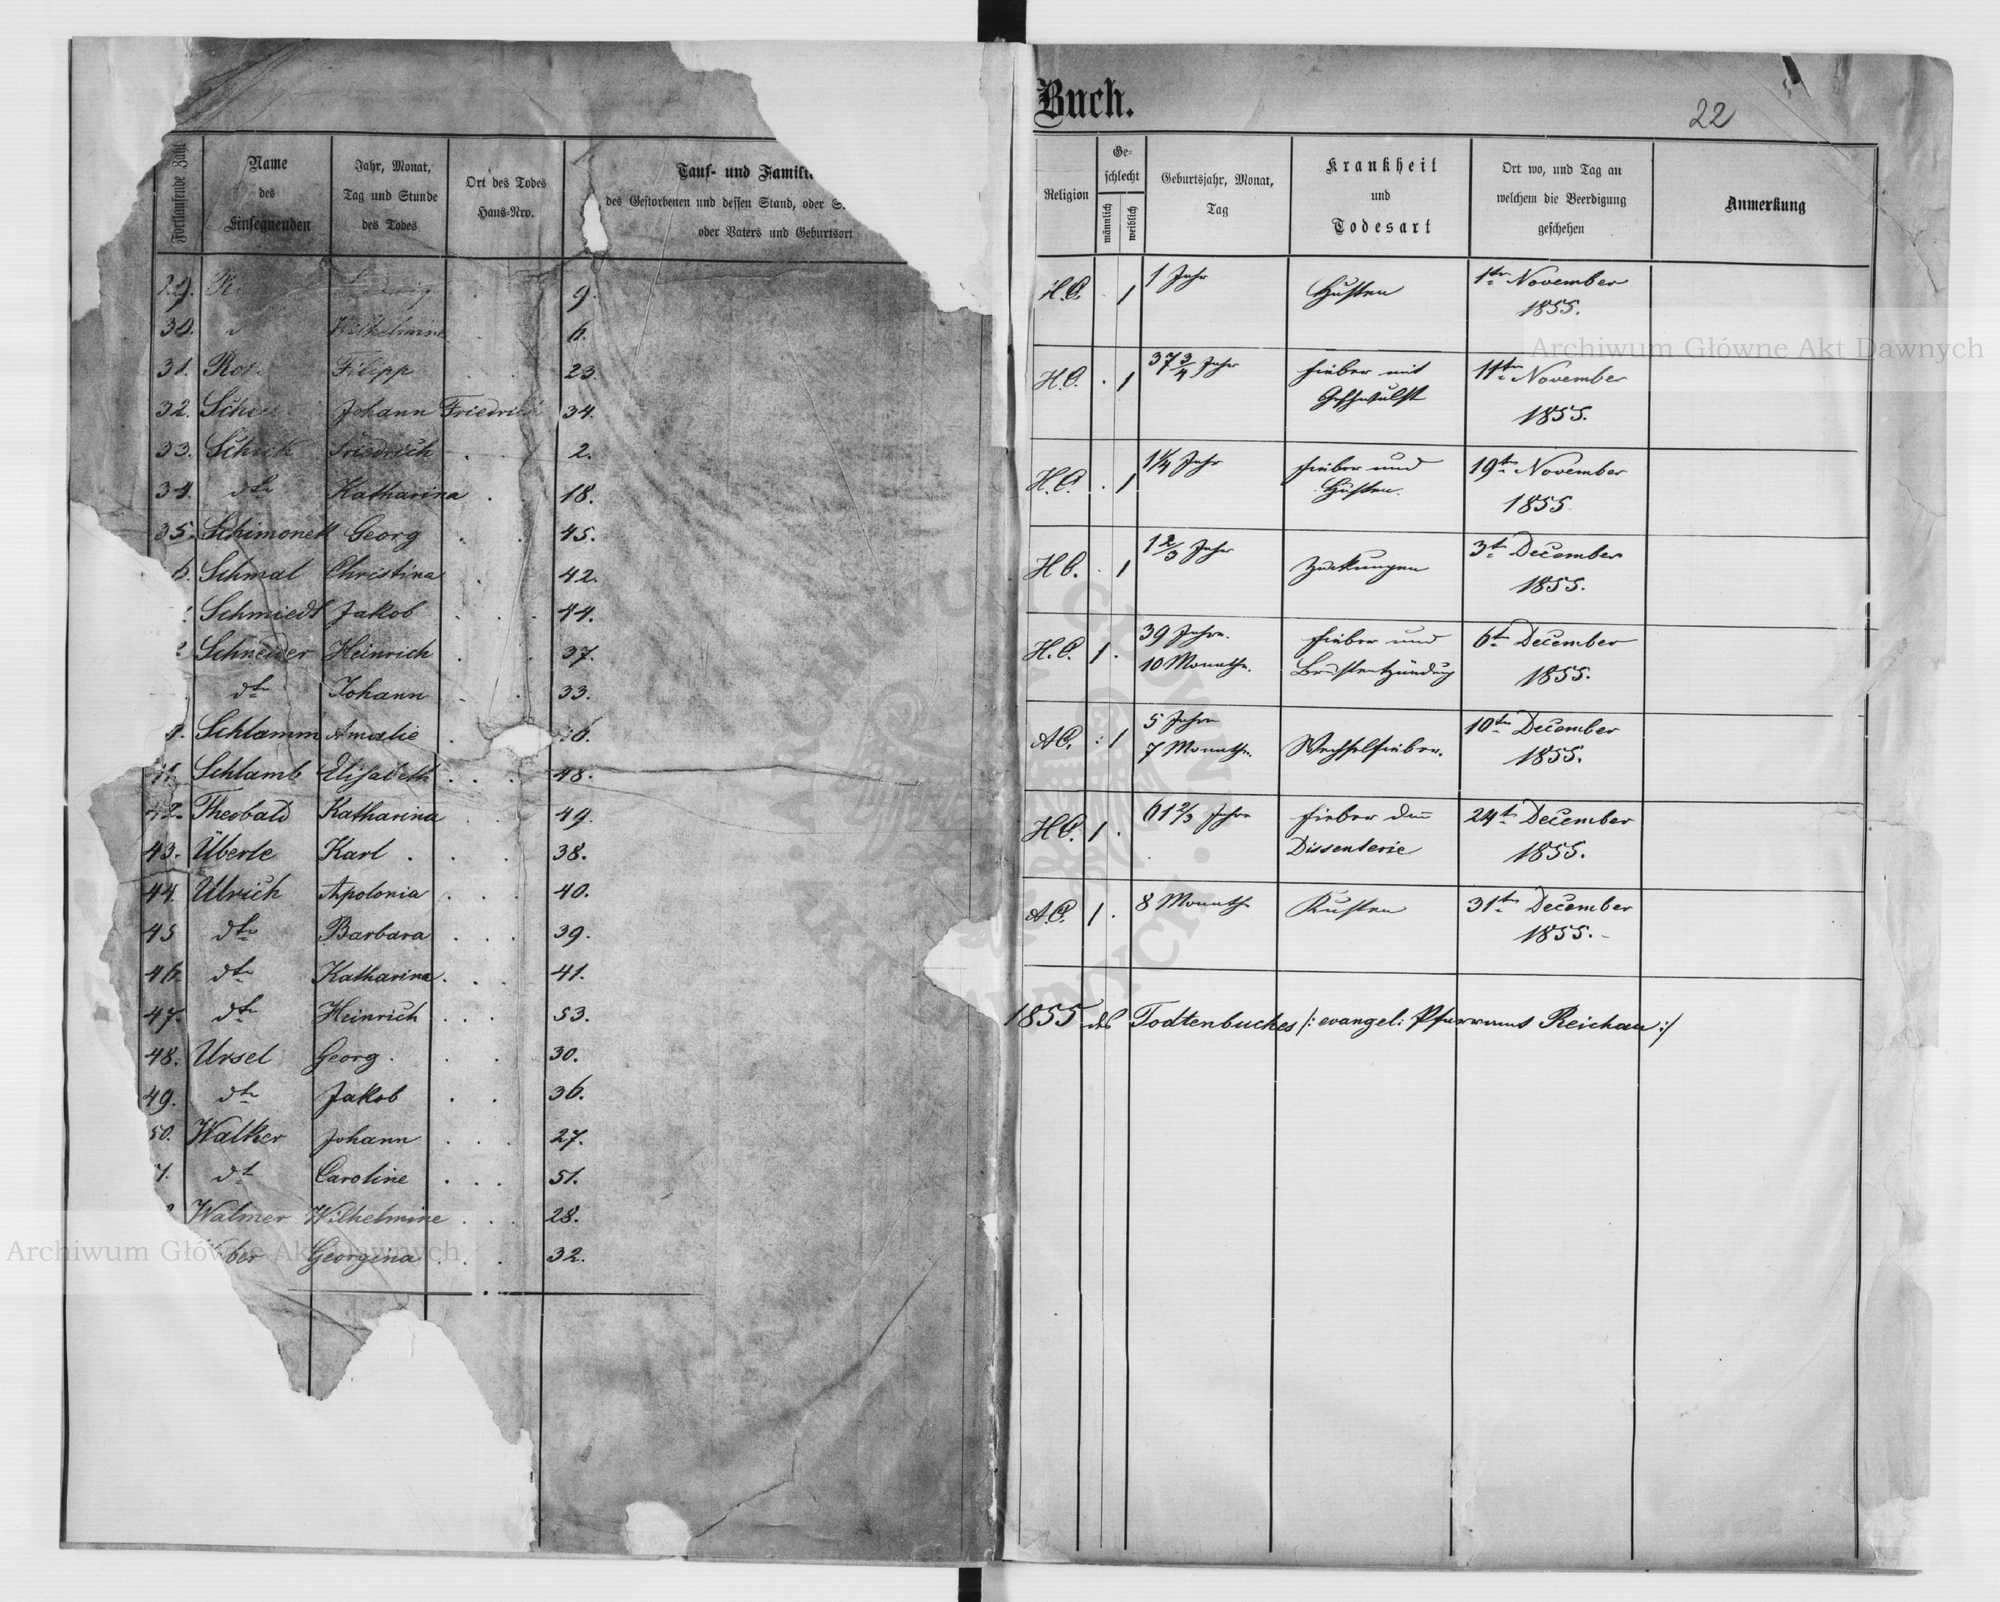 Fortlaufende Zahl
Name
des
Einsegnenden
Jahr, Monat,
Tag und Stunde
des Todes
Ort des Todes
Haus-Nro.
Tauf- und Famili
des Gestorbenen und dessen Stand, oder S
oder Vaters und Geburtsort
29. Ludwig 9.
30. Wilhelmine 6.
31. Filipp 23.
32. Johann Friedrich 34.
33. Friedrich 2.
34. dto Katharina 18.
35. Schimonek Georg 45.
Schmal Christina 42.
Schmiedt Jakob 44.
Schneider Heinrich 37.
dto Johann 33.
Schlamm Amalie
Schlamb Elisabeth 48.
42. Theobald Katharina 49.
43. Überle Karl 38.
44. Ulrich Apolonia 40.
45 dto Barbara 39.
46. dto Katharina 41.
47. dto Heinrich 53.
48. Ursel Georg 30.
49. dto Jakob 36.
50. Walker Johann 27.
dto Caroline 51.
Walmer Wilhelmine 28.
ber Georgina 32.
Buch.
22
Religion
Ge-
schlecht
männlich
weiblich
Geburtsjahr, Monat,
Tag
Krankheit
und
Todesart
Ort wo, und Tag an
welchem die Beerdigung
geschehen
Anmerkung
H.C. 1 1 Jahr Husten 1te November
1855.
H.C. 1 37 3/4 Jahr Fieber mit 11te November
Geschwulst 1855.
H.C. 1 1 1/4 Jahr Fieber und 19te November
Husten. 1855
H.C. 1 1 2/3 Jahr Zuckungen 3te December
1855.
H.C. 1 39 Jahre. Fieber und 6te December
10 Monathe. Brustentzündung 1855.
A.C. 1 5 Jahre 10te December
7 Monathe. Wechselfieber. 1855.
H.C. 1 61 2/3 Jahre Fieber dan 24te December
Dissenterie 1855.
A.C. 1 8 Monathe Husten 31te December
1855.
1855 des Todtenbuches /: evangel: Pfarramts Reichau :/
Archiwum Główne Akt Dawnych
Archiwum Główne Akt Dawnych